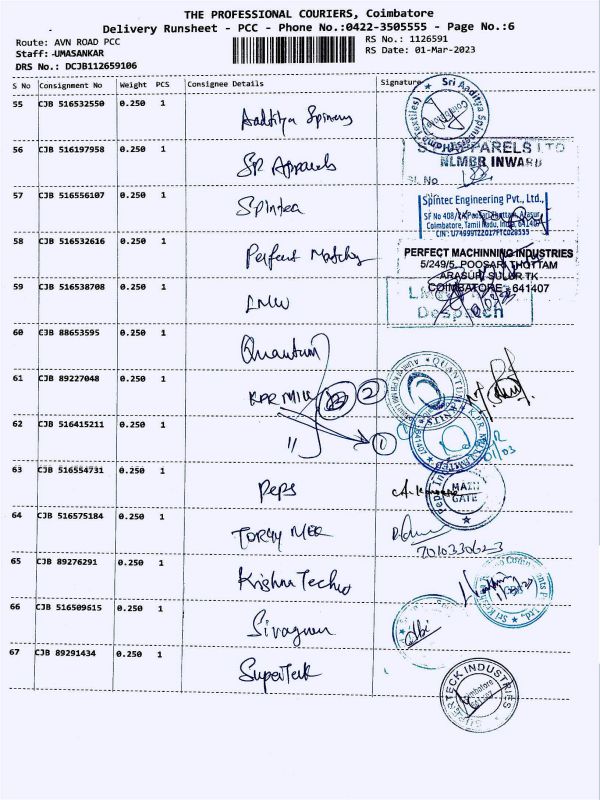 THE PROFESSIONAL COURIERS, Coimbatore
Delivery Runsheet - PCC - Phone No.:0422-3505555 - Page No.:6
Route: AVN ROAD PCC
RS No.: 1126591
Staff:-UMASANKAR
RS Date: 01-Mar-2023
DRS No.: DCJB112659106
S No Consignment No Weight PCS Consignee Details Signature
55 CJB 516532550 0.250 1
Aaditya Spinners
Sri Aaditya
56 CJB 516197958 0.250 1
SP Apparels
APPARELS LTD
NLMBR INWARD
Sl. No
57 CJB 516556107 0.250 1
Spintec
Spintec Engineering Pvt., Ltd.,
Coimbatore, Tamil Nadu, India, 641407
58 CJB 516532616 0.250 1
Perfect Matchy
PERFECT MACHINNING INDUSTRIES
5/249/5, POOSARI THOTTAM
ARASUR, SULUR TK
COIMBATORE - 641407
59 CJB 516538708 0.250 1
LMW
Despatch
60 CJB 88653595 0.250 1
Quantum
61 CJB 89227048 0.250 1
KPR Mill
2
QUANTUM KNITS
62 CJB 516415211 0.250 1
"
1
01/03
63 CJB 516554731 0.250 1
Peps
MAIN
GATE
64 CJB 516575184 0.250 1
7010330623
65 CJB 89276291 0.250 1
Krishna Techno
66 CJB 516509615 0.250 1
Sivagnan
Abi
67 CJB 89291434 0.250 1
SuperTeck
SUPER TECK INDUSTRIES
Coimbatore